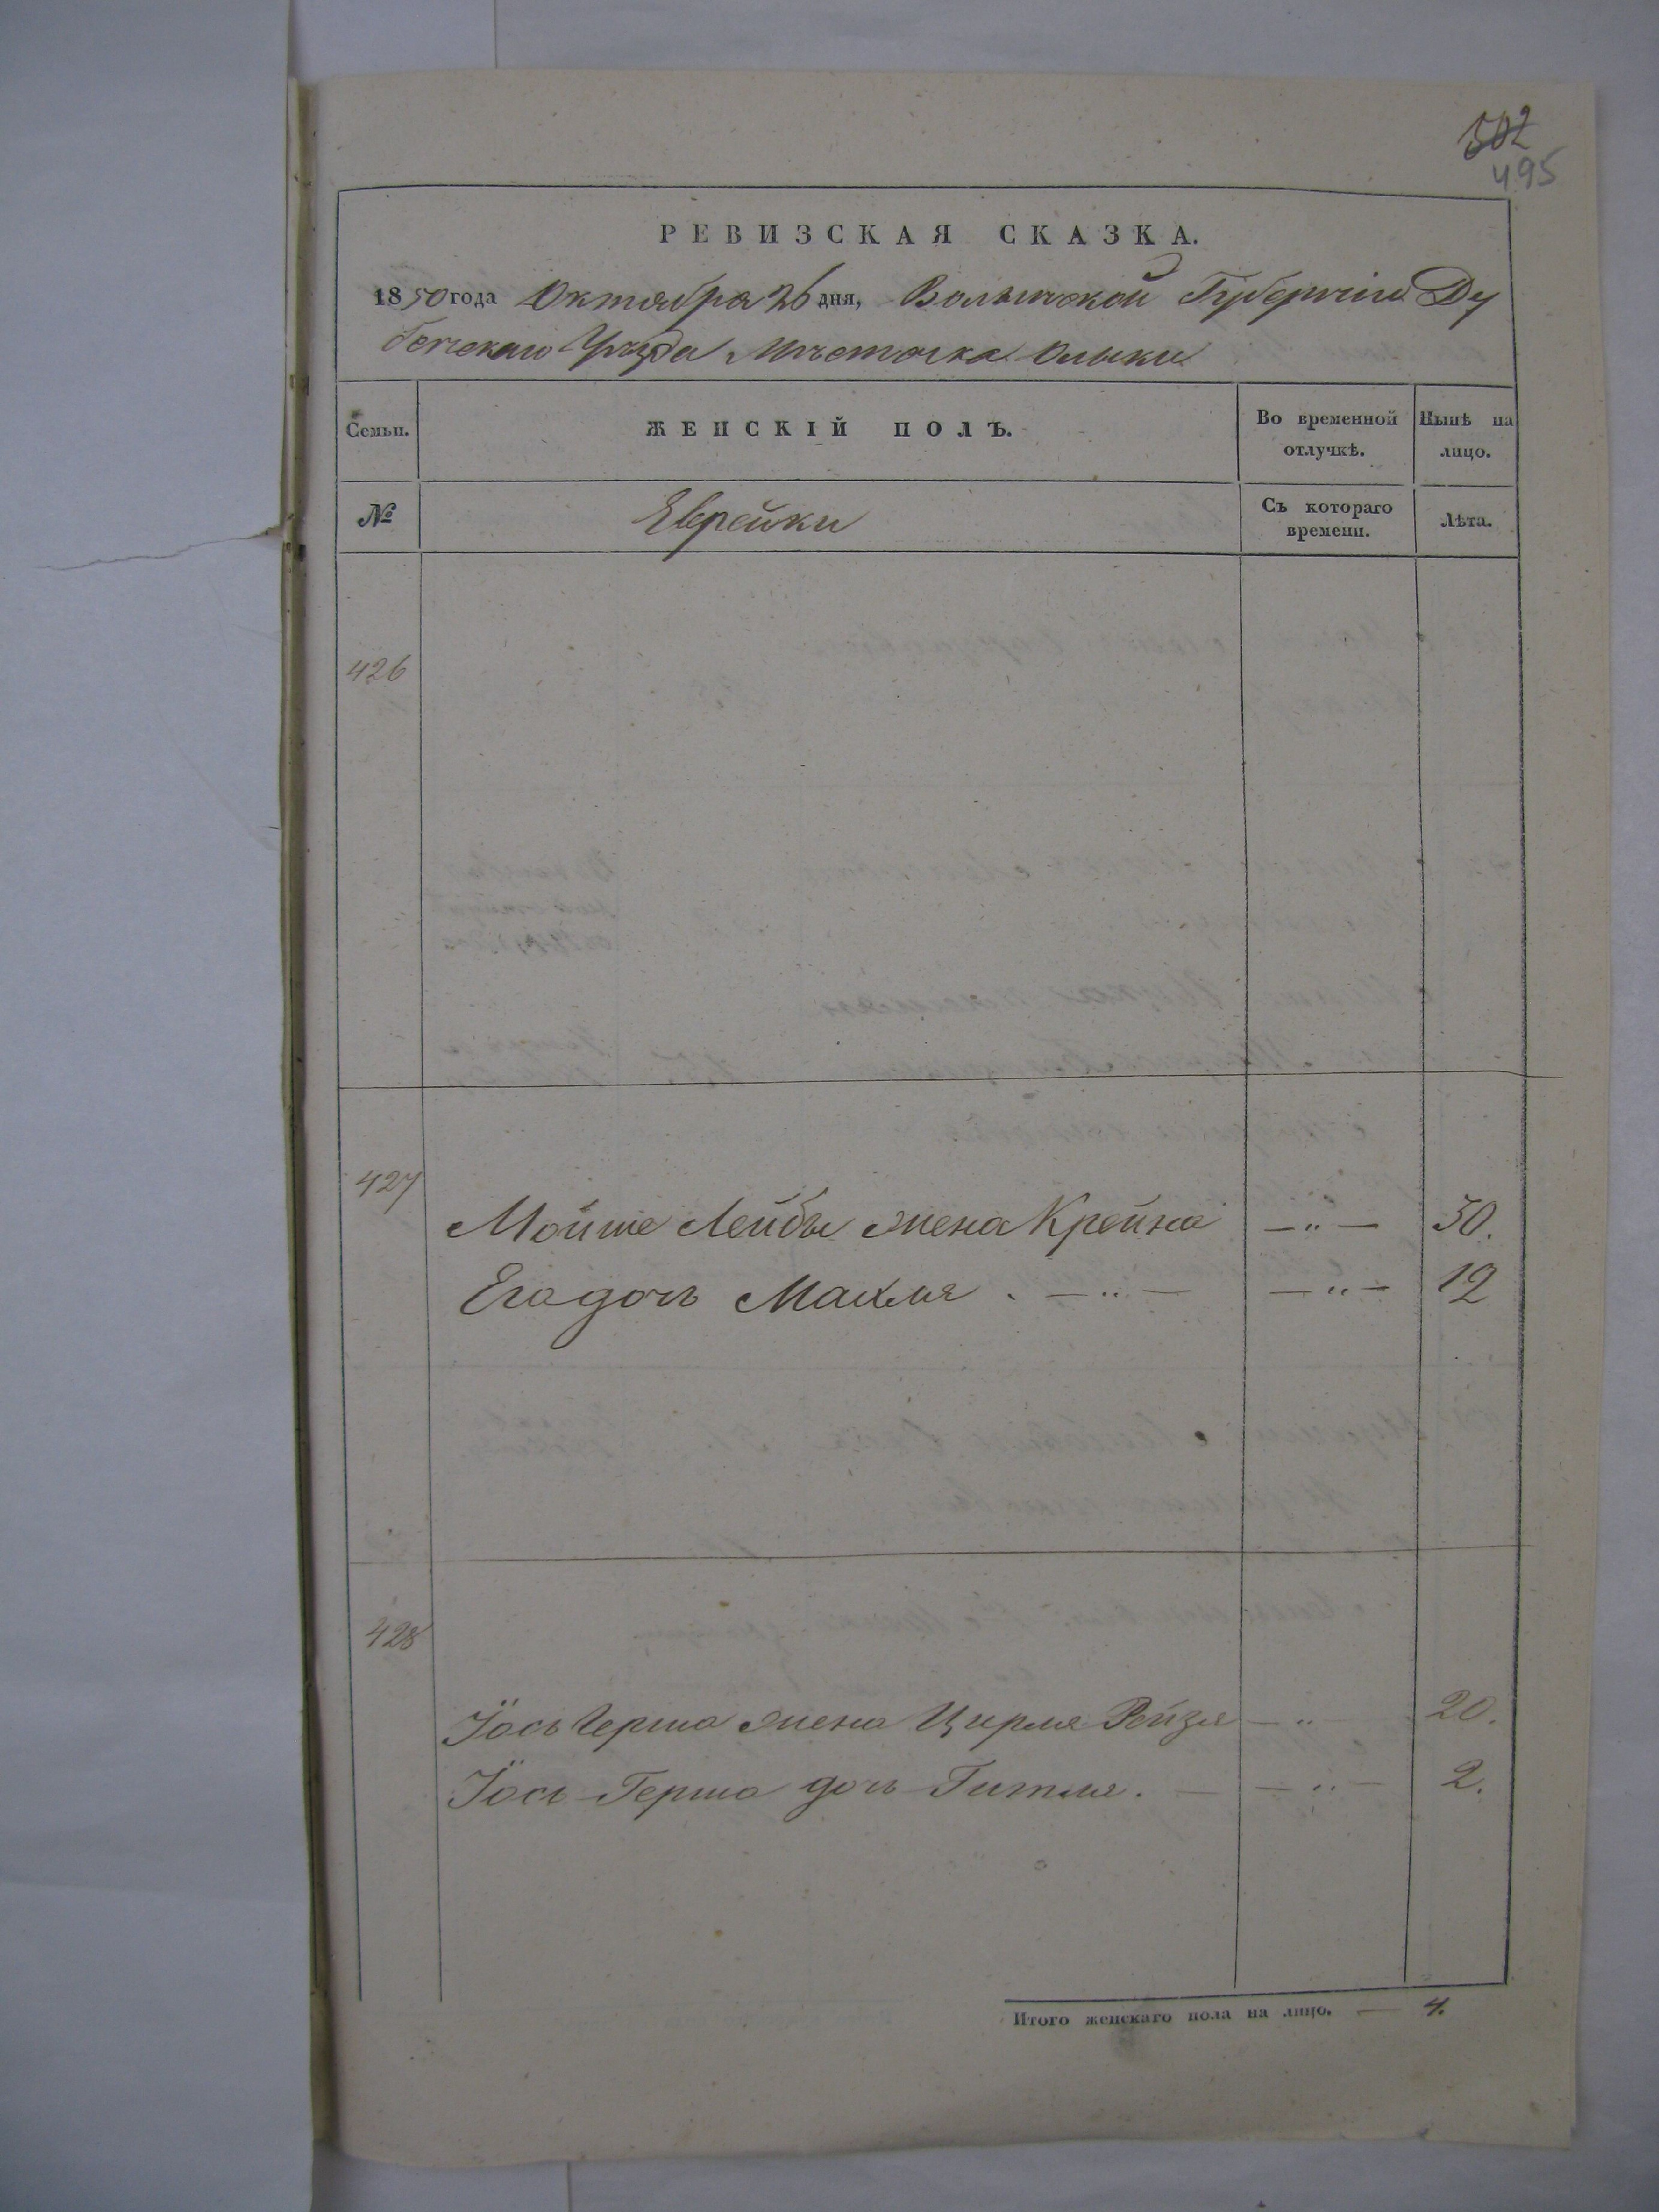 502
495
РЕВИЗСКАЯ СКАЗКА.
1850 года Октября 26 дня, Волынской Губерніи Ду
бенскаго Уѣзда Мѣстечка Олыки
Семьи. ЖЕНСКІЙ ПОЛЪ. Во временной отлучкѣ. Нынѣ на лицо.
№ Еврейки Съ котораго времени. Лѣта.
426
427
Мойше Лейбы жена Крейна — „ — 30.
Его дочь Махля . — „ — — „ — 12
428
Іось Герша жена Цирля Рейзя — „ 20.
Іось Герша дочь Гитля. — — „ — 2.
Итого женскаго пола на лицо. — 4.